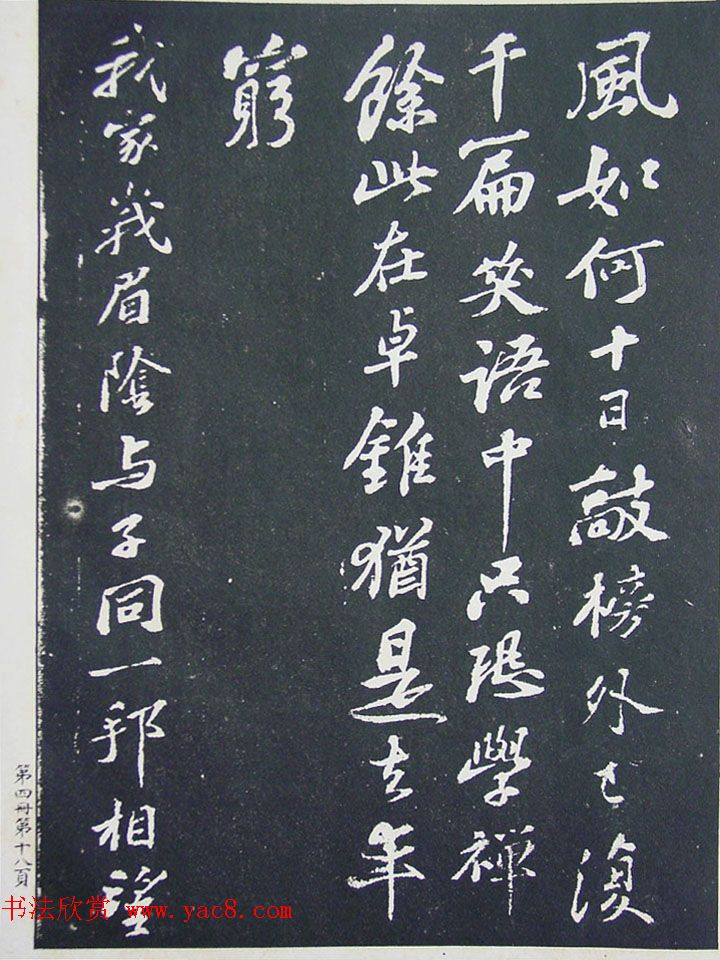 風如何十日敲榜外已復
千篇笑語中只恐學禪
餘此在卓錐猶是去年
窮
我家峩眉陰与子同一邦相望
第四冊第十八頁
书法欣赏 www.yac8.com